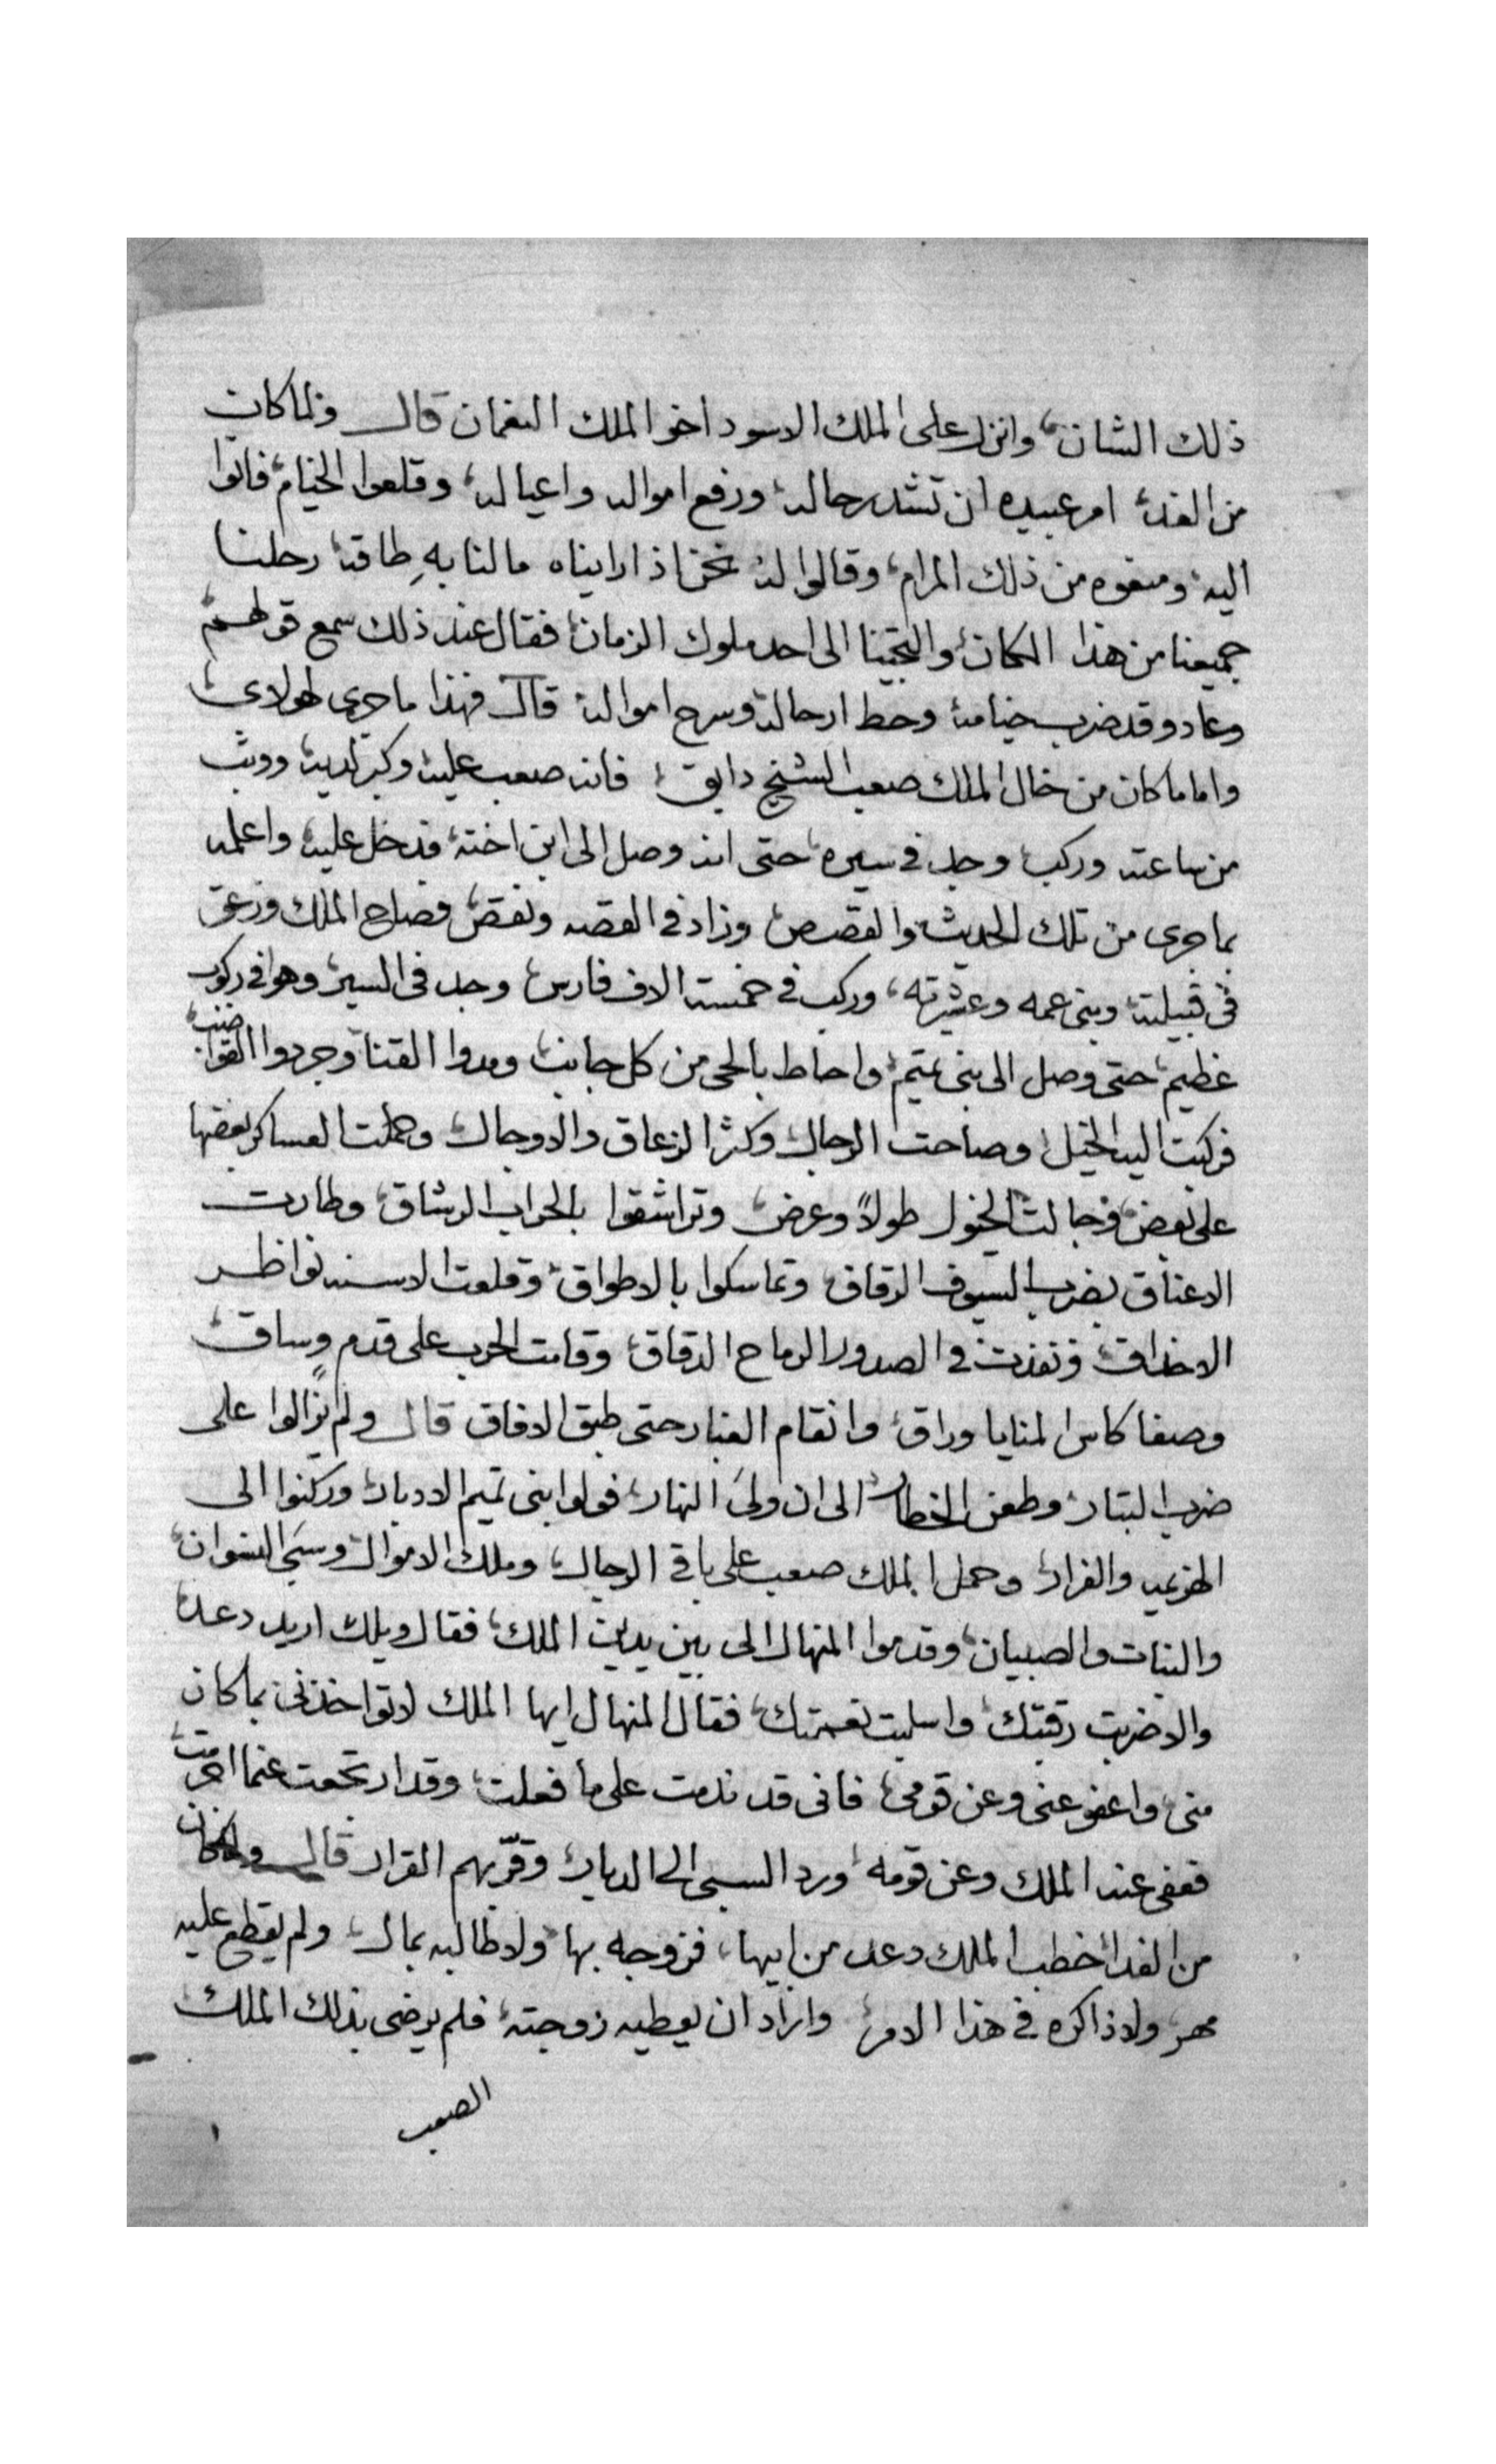 ذلك الشان، وانزل على الملك الاسود اخو الملك النعمان قال ولما كان
من الغد، امر عبيده ان تشد رحاله، ورفع امواله واعياله، وقلعوا الخيام، فاتوا
اليه، ومنعوه من ذلك المرام، وقالوا له نحن اذا رايناه مالنا بهِ طاقه رحلنا
جميعنا من هذا المكان، والتجينا الى احد ملوك الزمان، فقال عند ذلك سمع قولهم،
وعاد وقد ضرب خيامه وحط ارحاله، وسرح امواله قال فهذا ما جرى لهولاي،
واما ما كان من خال الملك صعب الشيخ دابق، فانه صعب عليه، وكبر لديه، ووثب
من ساعته وركب، وجد في سيره، حتى انه وصل الى ابن اخته، فدخل عليه، واعلمه
بما جرى من تلك الحديث والقصص، وزاد في القصه ونقص، فصاح الملك وزعق
في قبيلته، وبني عمه وعشيرته، وركب في خمسة الاف فارس، وجد في السير، وهو في ركوب
عظيم، حتى وصل الى بني تميم، واحاط بالحي من كل جانب، ومدوا القنا، وجردوا القواضب،
فركبت اليه الخيل، وصاحت الرجال، وكثر الزعاق والاوجال، وحملت العساكر بعضها
على بعض، وجالت الخيول طولاً وعرض، وتراشقوا بالحراب الرشاق، وطارت
الاعناق بضرب السيوف الرقاق، وتماسكوا بالاطواق، وقلعت الاسنه نواظر
الاحداق، ونفذت في الصدور الرماح الدقاق، وقامت الحرب على قدمٍ وساق،
وصفا كاس المنايا وراق، وانقام الغبار حتى طبق الافاق قال ولم يزالوا على
ضرب البتار، وطعن الخطار، الى ان ولىَ النهار، فولوا بني تميم الادبار، وركنوا الى
الهزيمه والفرار، وحمل الملك صعب على باقي الرجال، وملك الاموال، وسبىَ النسوان،
والبنات والصبيان، وقدموا المنهال الى بين يدين الملك، فقال ويلك اريد دعد،
والا ضربت رقبتك، واسلبت نعمتك، فقال المنهال ايها الملك لا تواخذني بما كان
مني، واعفو عني وعن قومي، فاني قد ندمت على ما فعلت، وقد ارتجعت عنما اجرمت،
فعفى عنه الملك وعن قومه، ورد السبي الى الديار، وقرّ بهم القرار قال ولما كان
من الغد، خطب الملك دعد من ابيها، فزوجه بها، ولا طالبه بمال، ولم يقطع عليه
مهر، ولا ذاكره في هذا الامر، واراد ان يعطيه زوجته، فلم يرضى بذلك الملك
الصعب